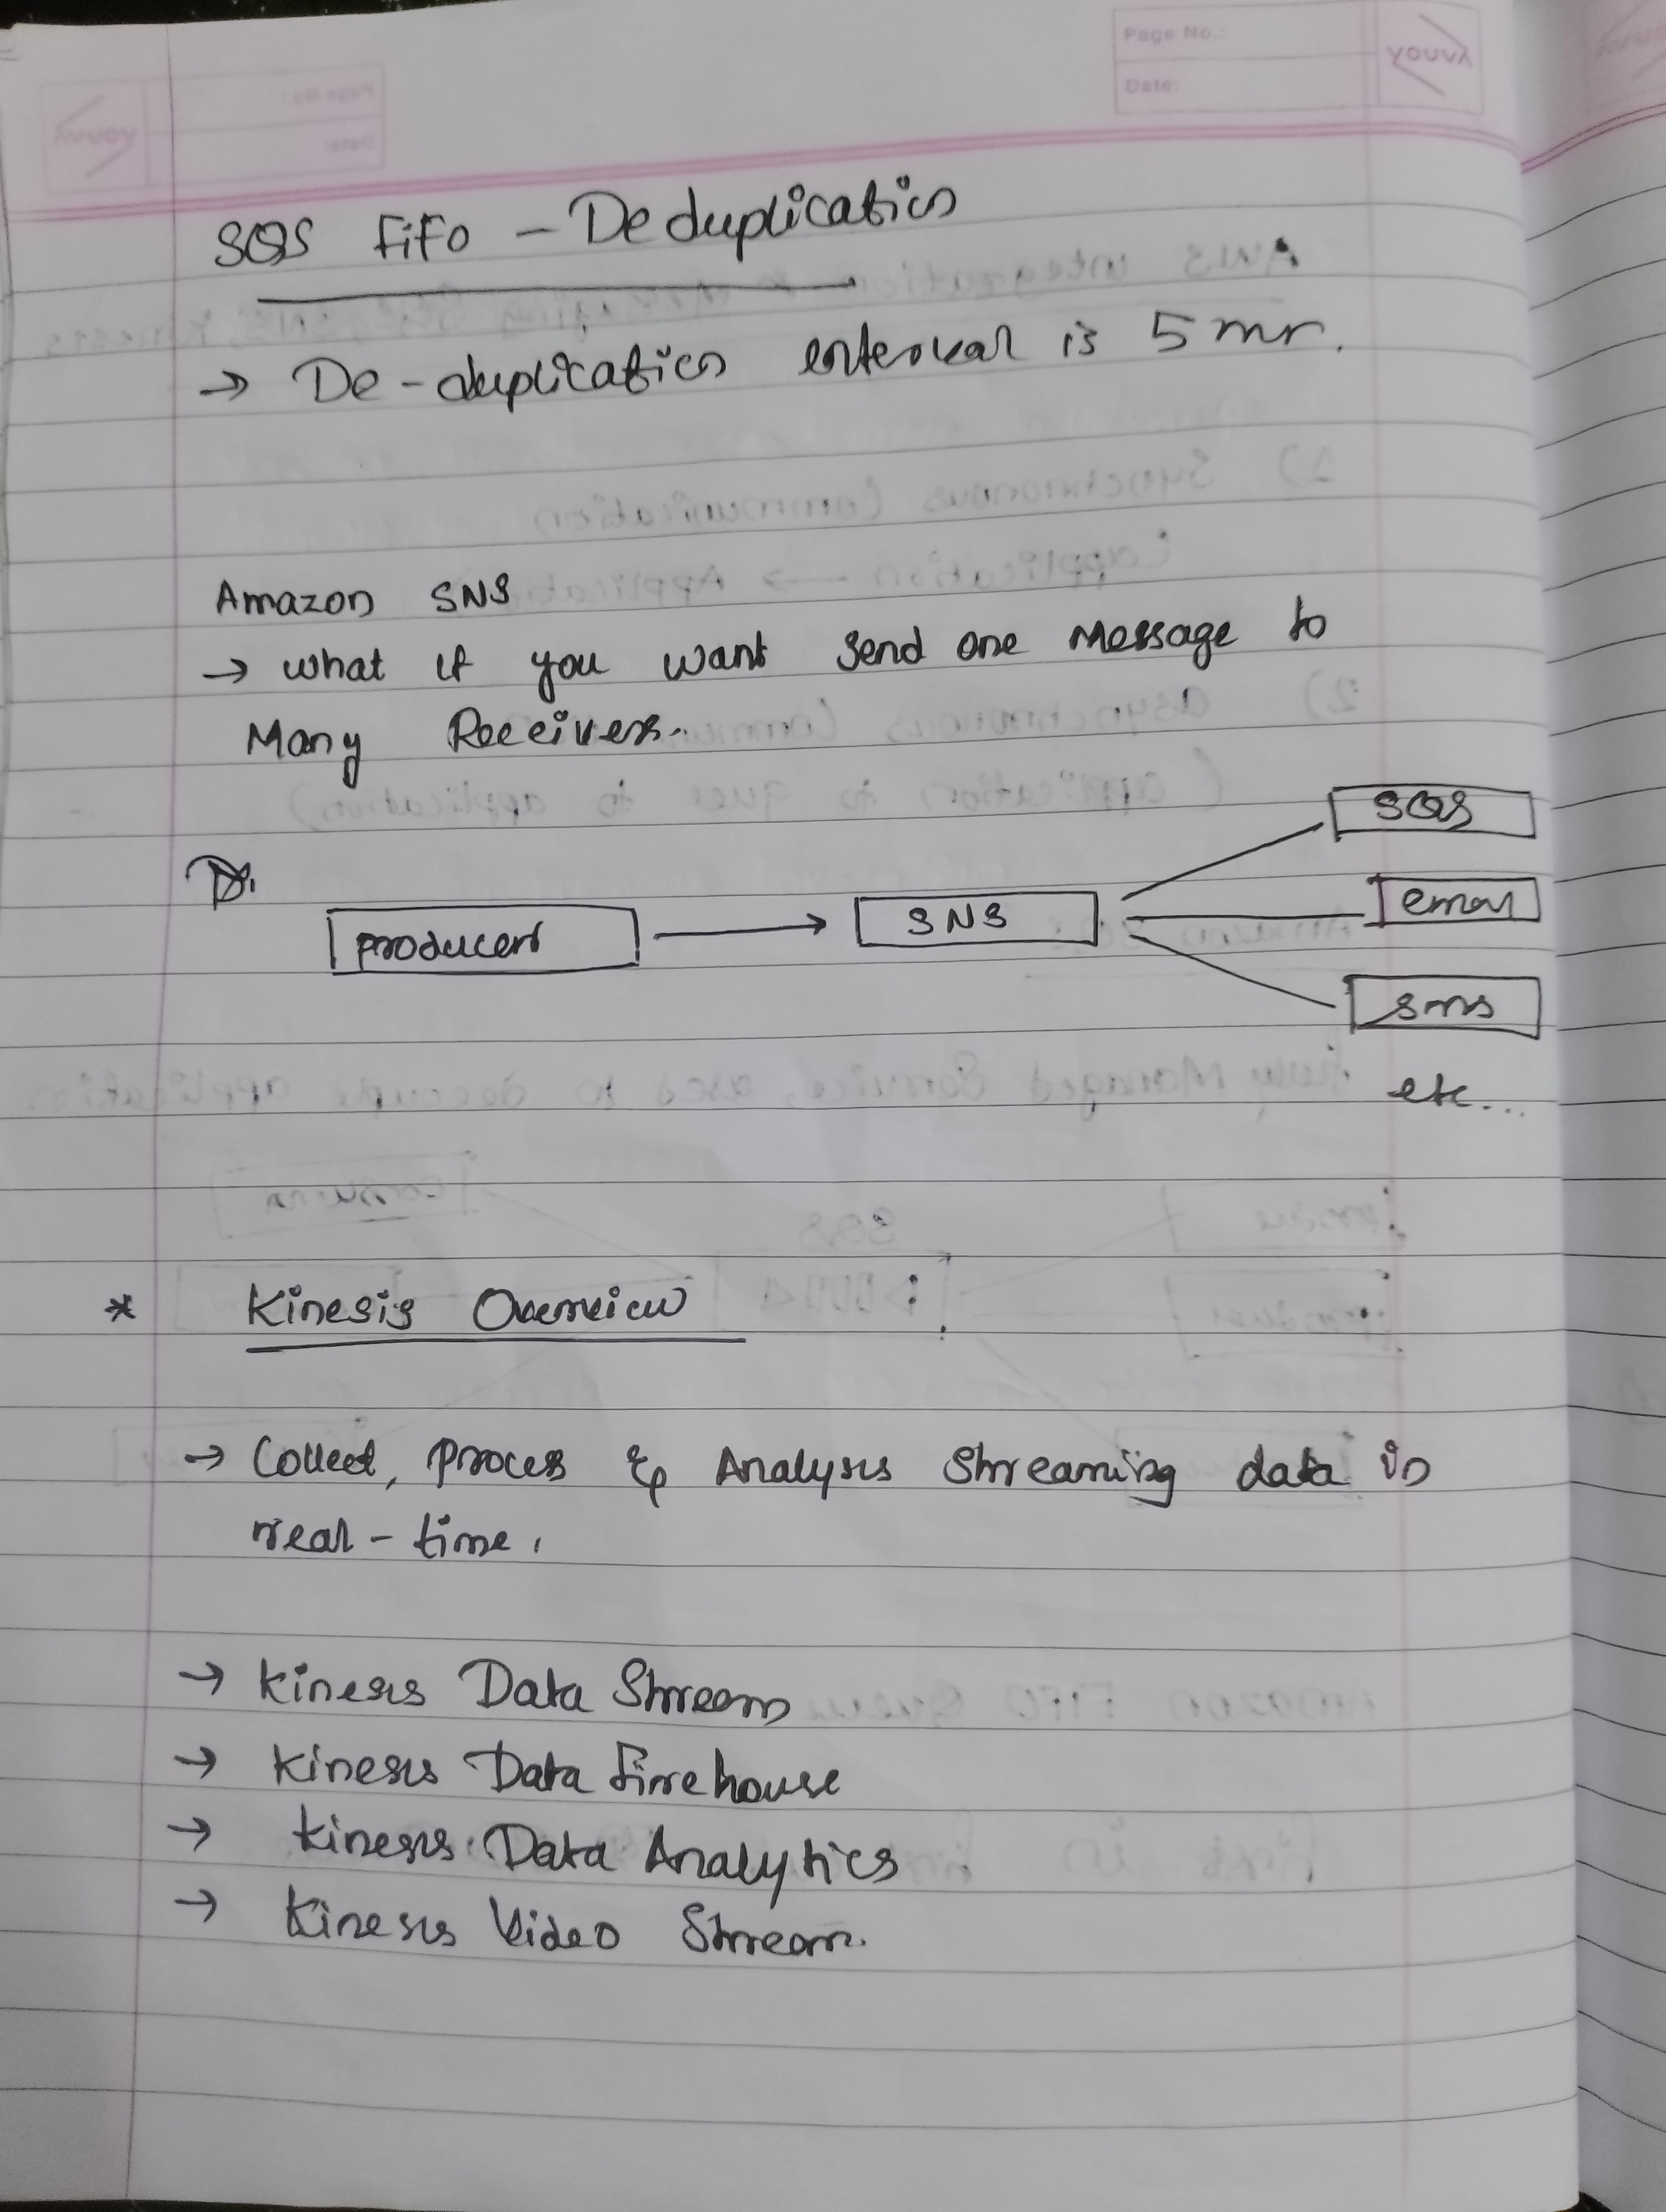 Page No.:
Date:
YOUVA
SQS FiFo - Deduplication
→ De-duplication interval is 5 mn.
Amazon SNS
→ what if you want send one message to
Many Receivers.
producer → SNS
SQS
email
sms
etc...
* Kinesis Overview
→ Collect, process & Analysis streaming data in
real-time.
→ kinesis Data Stream
→ kinesis Data firehouse
→ kinesis Data Analytics
→ Kinesis Video Stream.